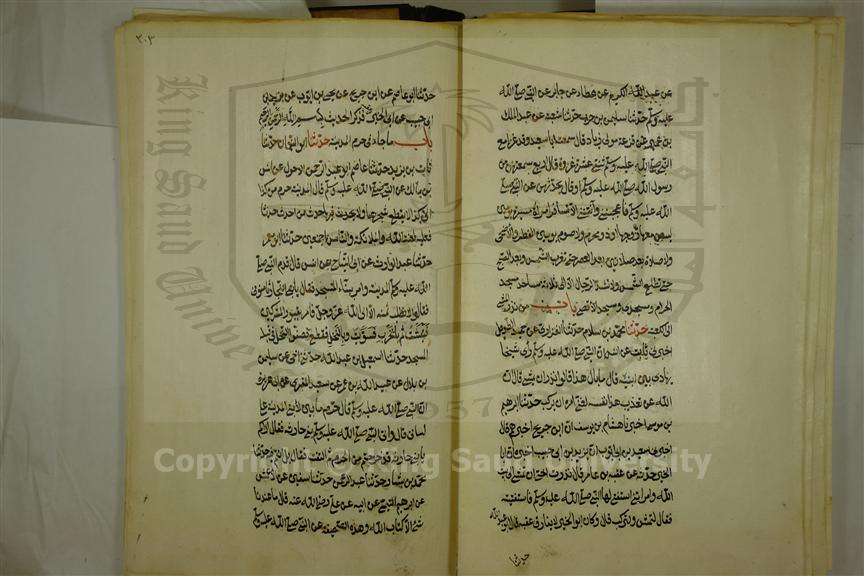 عن عبد الكريم عن عطاء عن جابر عن النبي صلى الله
عليه وسلم حدثنا سليمن بن حرب حدثنا شعبة عن عبد الملك
بن عمير عن قزعة مولى زياد قال سمعت ابا سعيد وقد غزا مع
النبي صلى الله عليه وسلم ثنتي عشرة غزوة قال اربع سمعتهن من
رسول الله صلى الله عليه وسلم او قال يحدثهن عن النبي صلى
الله عليه وسلم فاعجبنني وآنقنني الا تسافر امرأة مسيرة يومين
ليس معها زوجها او ذو محرم ولا صوم يومين الفطر والاضحى
ولا صلاة بعد صلاتين بعد العصر حتى تغرب الشمس وبعد الصبح
حتى تطلع الشمس ولا تشد الرحال الا الى ثلاثة مساجد مسجد
الحرام ومسجدي ومسجد الاقصى باب من نذر المشي
الى الكعبة حدثنا محمد بن سلام حدثنا الفزاري عن حميد الطويل
اخبرني ثابت عن انس ان النبي صلى الله عليه وسلم رأى شيخا
يهادى بين ابنيه قال ما بال هذا قالوا نذر ان يمشي قال ان
الله عن تعذيب هذا نفسه لغني امره ان يركب حدثنا ابرهيم
بن موسى اخبرنا هشام بن يوسف ان ابن جريج اخبرهم قال
اخبرني سعيد بن ابي ايوب ان يزيد بن ابي حبيب اخبره ان ابا
الخير حدثه عن عقبة بن عامر قال نذرت اختي ان تمشي الى بيت
الله وامرتني ان استفتي لها النبي صلى الله عليه وسلم فاستفتيته
فقال لتمش ولتركب قال وكان ابو الخير لا يفارق عقبة قال ابو عبد الله
حدثنا
٣٠٣
حدثنا ابو عاصم عن ابن جريج عن يحيى بن ايوب عن يزيد بن
ابي حبيب عن ابي الخير فذكر الحديث بسم الله الرحمن الرحيم
باب ما جاء في حرم المدينة حدثنا ابو النعمان حدثنا
ثابت بن يزيد حدثنا عاصم ابو عبد الرحمن الاحول عن انس
بن مالك عن النبي صلى الله عليه وسلم قال المدينة حرم من كذا
الى كذا لا يقطع شجرها ولا يحدث فيها حدث من احدث حدثا
فعليه لعنة الله والملائكة والناس اجمعين حدثنا ابو معمر
حدثنا عبد الوارث عن ابي التياح عن انس قال قدم النبي صلى
الله عليه وسلم المدينة وامر ببناء المسجد فقال يا بني النجار ثامنوني
فقالوا لا نطلب ثمنه الا الى الله عز وجل فامر بقبور المشركين
فنبشت ثم بالخرب فسويت وبالنخل فقطع فصفوا النخل قبلة
المسجد حدثنا اسمعيل بن عبد الله حدثني اخي عن سليمن
بن بلال عن عبيد الله بن عمر عن سعيد المقبري عن ابي هريرة
ان النبي صلى الله عليه وسلم قال حرم ما بين لابتي المدينة على
لساني قال واتى النبي صلى الله عليه وسلم بني حارثة فقال اراكم
يا بني حارثة قد خرجتم من الحرم ثم التفت فقال بل انتم فيه حدثنا
محمد بن بشار حدثنا عبد الرحمن حدثنا سفين عن الاعمش
عن ابرهيم التيمي عن ابيه عن علي رضي الله عنه قال ما عندنا
شئ الا كتاب الله وهذه الصحيفة عن النبي صلى الله عليه وسلم
King Saud University
1957
Copyright © King Saud University